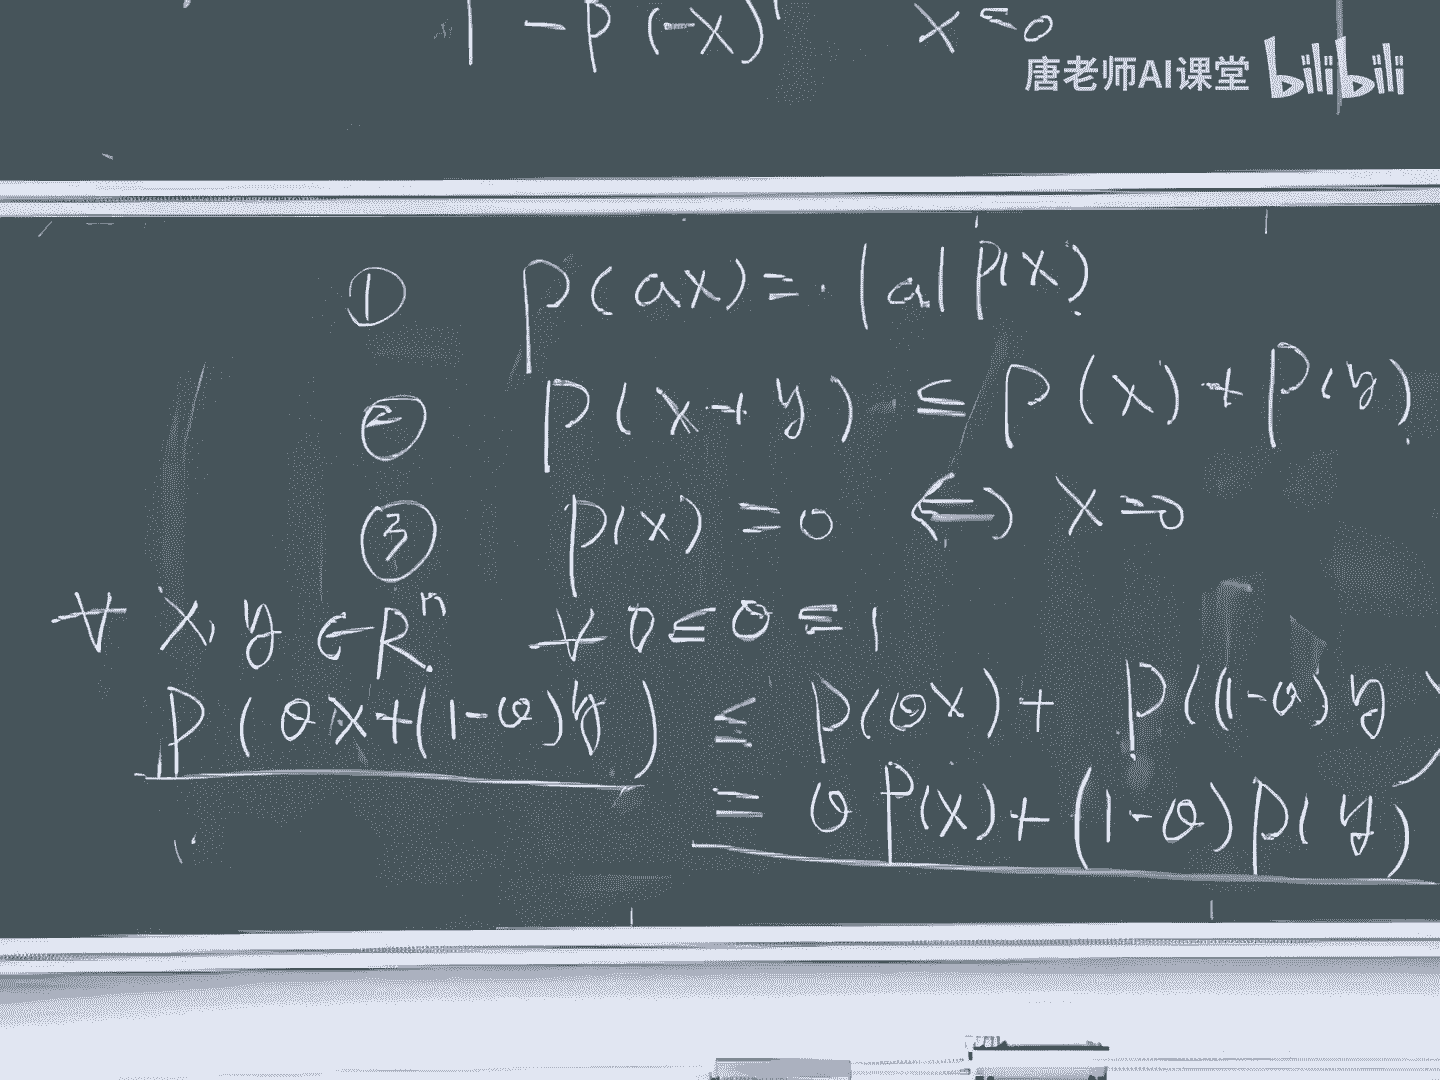 1 - P(-x) x ≤ 0
唐老师AI课堂 bilibili
① P(ax) = |a| P(x)
② P(x+y) ≤ P(x) + P(y)
③ P(x) = 0 ⇔ x = 0
∀ x, y ∈ Rⁿ ∀ 0 ≤ θ ≤ 1
P(θx+(1-θ)y) ≤ P(θx) + P((1-θ)y)
= θP(x)+(1-θ)P(y)